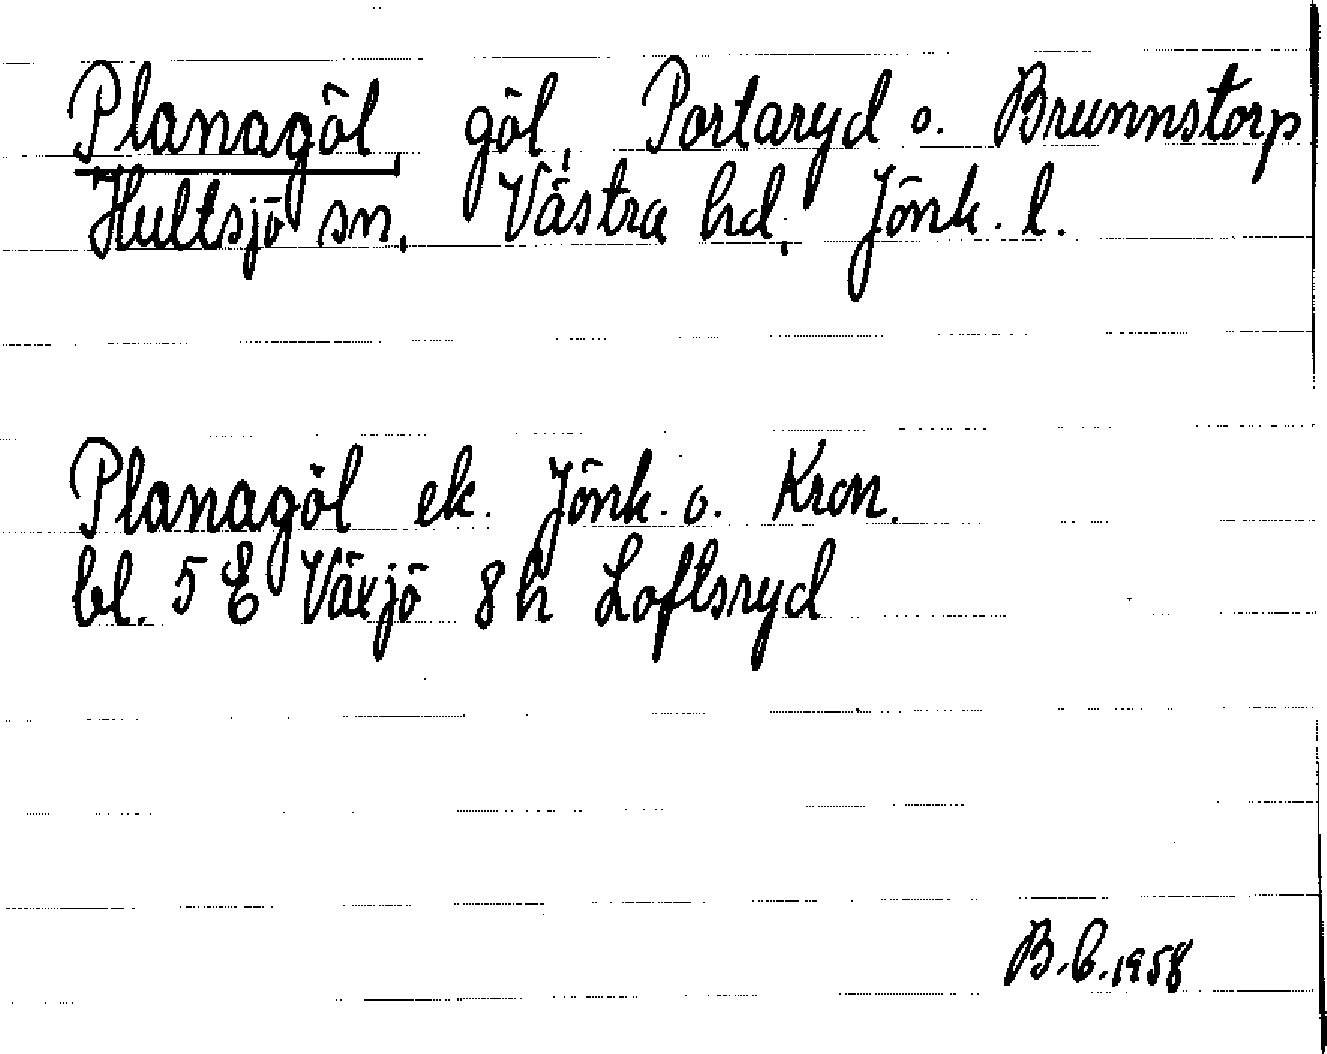 Planagöl, göl, Portaryd o. Brunnstorp
Hultsjö sn, Västra hd, Jönk. l.
Planagöl ek. Jönk. o. Kron.
bl. 5 E Växjö 8 h Loftsryd
B.C. 1958